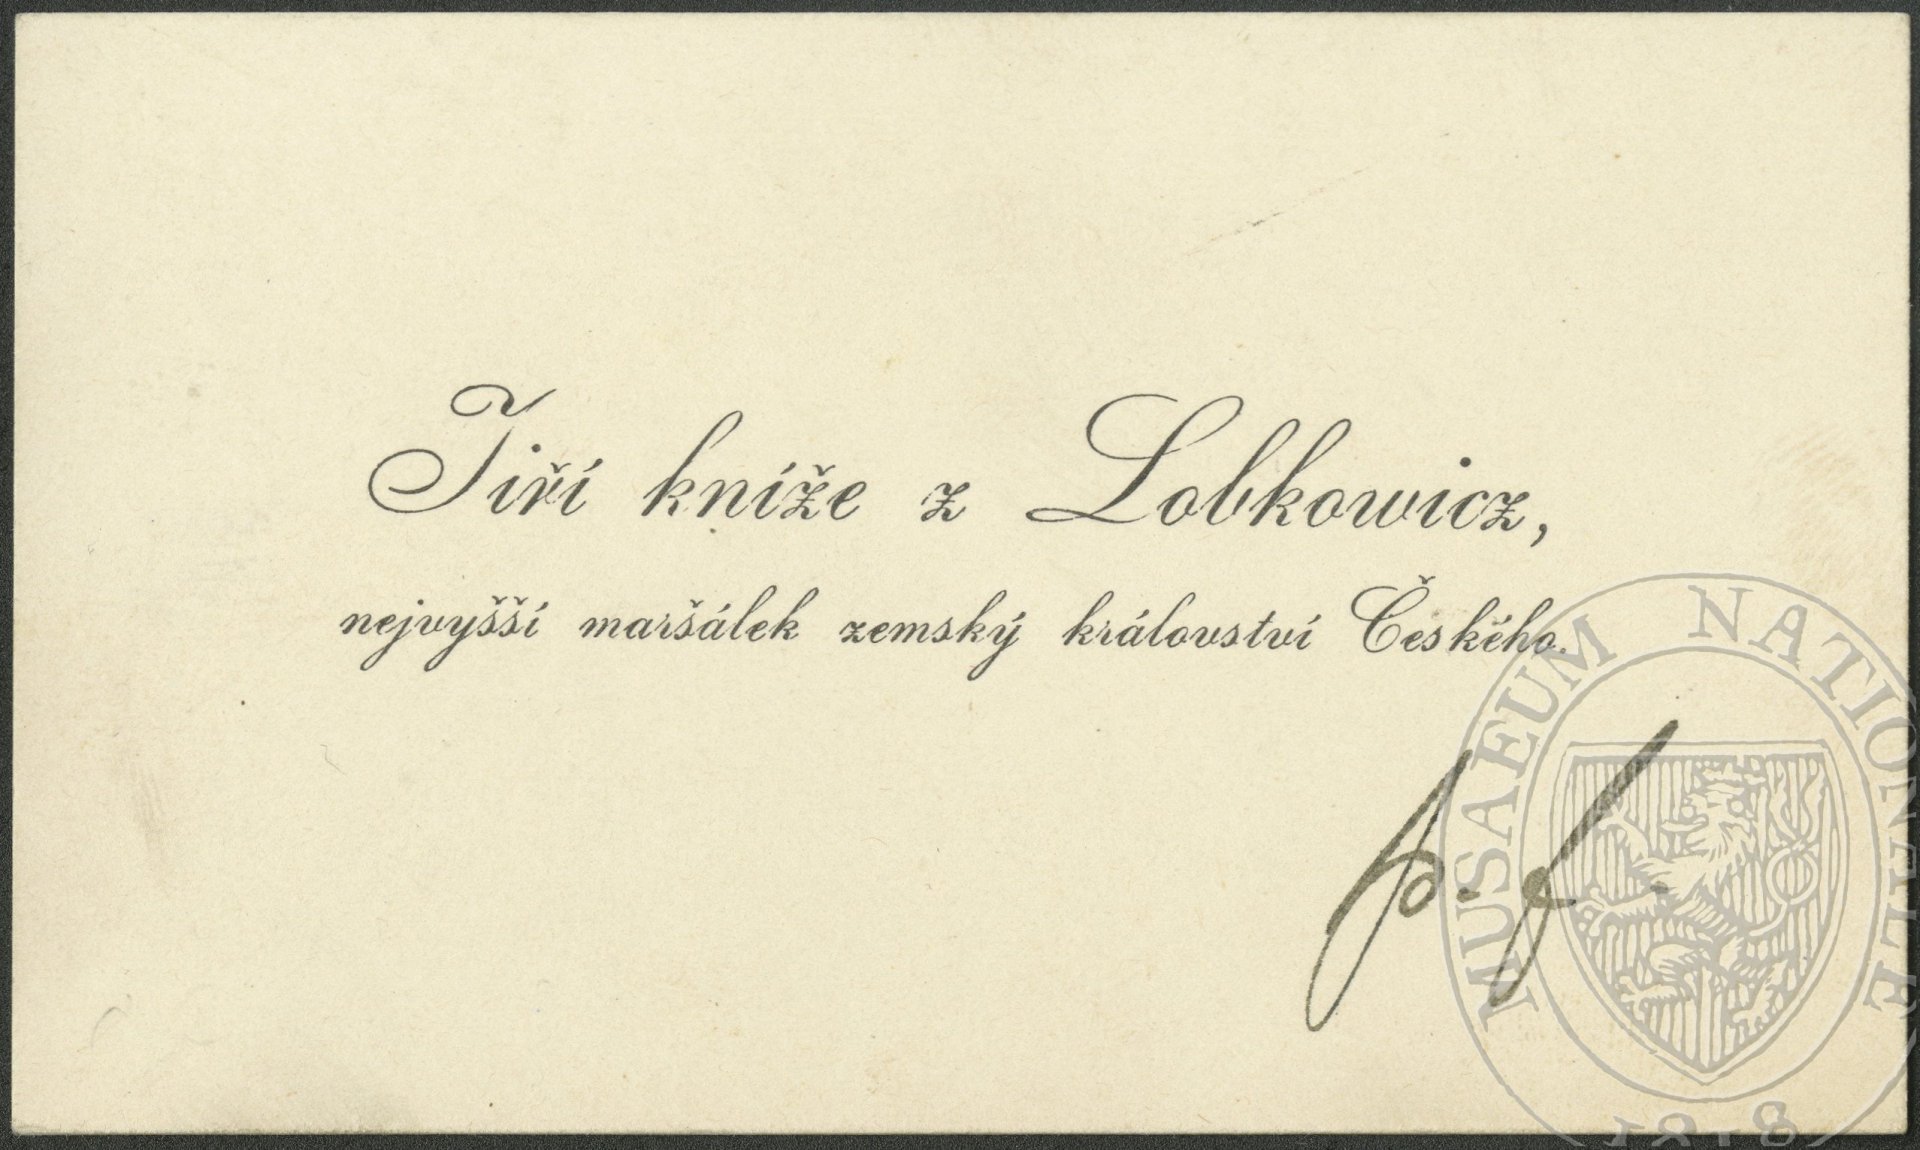 Jiří kníže z Lobkowicz,
nejvyšší maršálek zemský království Českého.
p. f.
MUSAEUM NATIONALE
1818